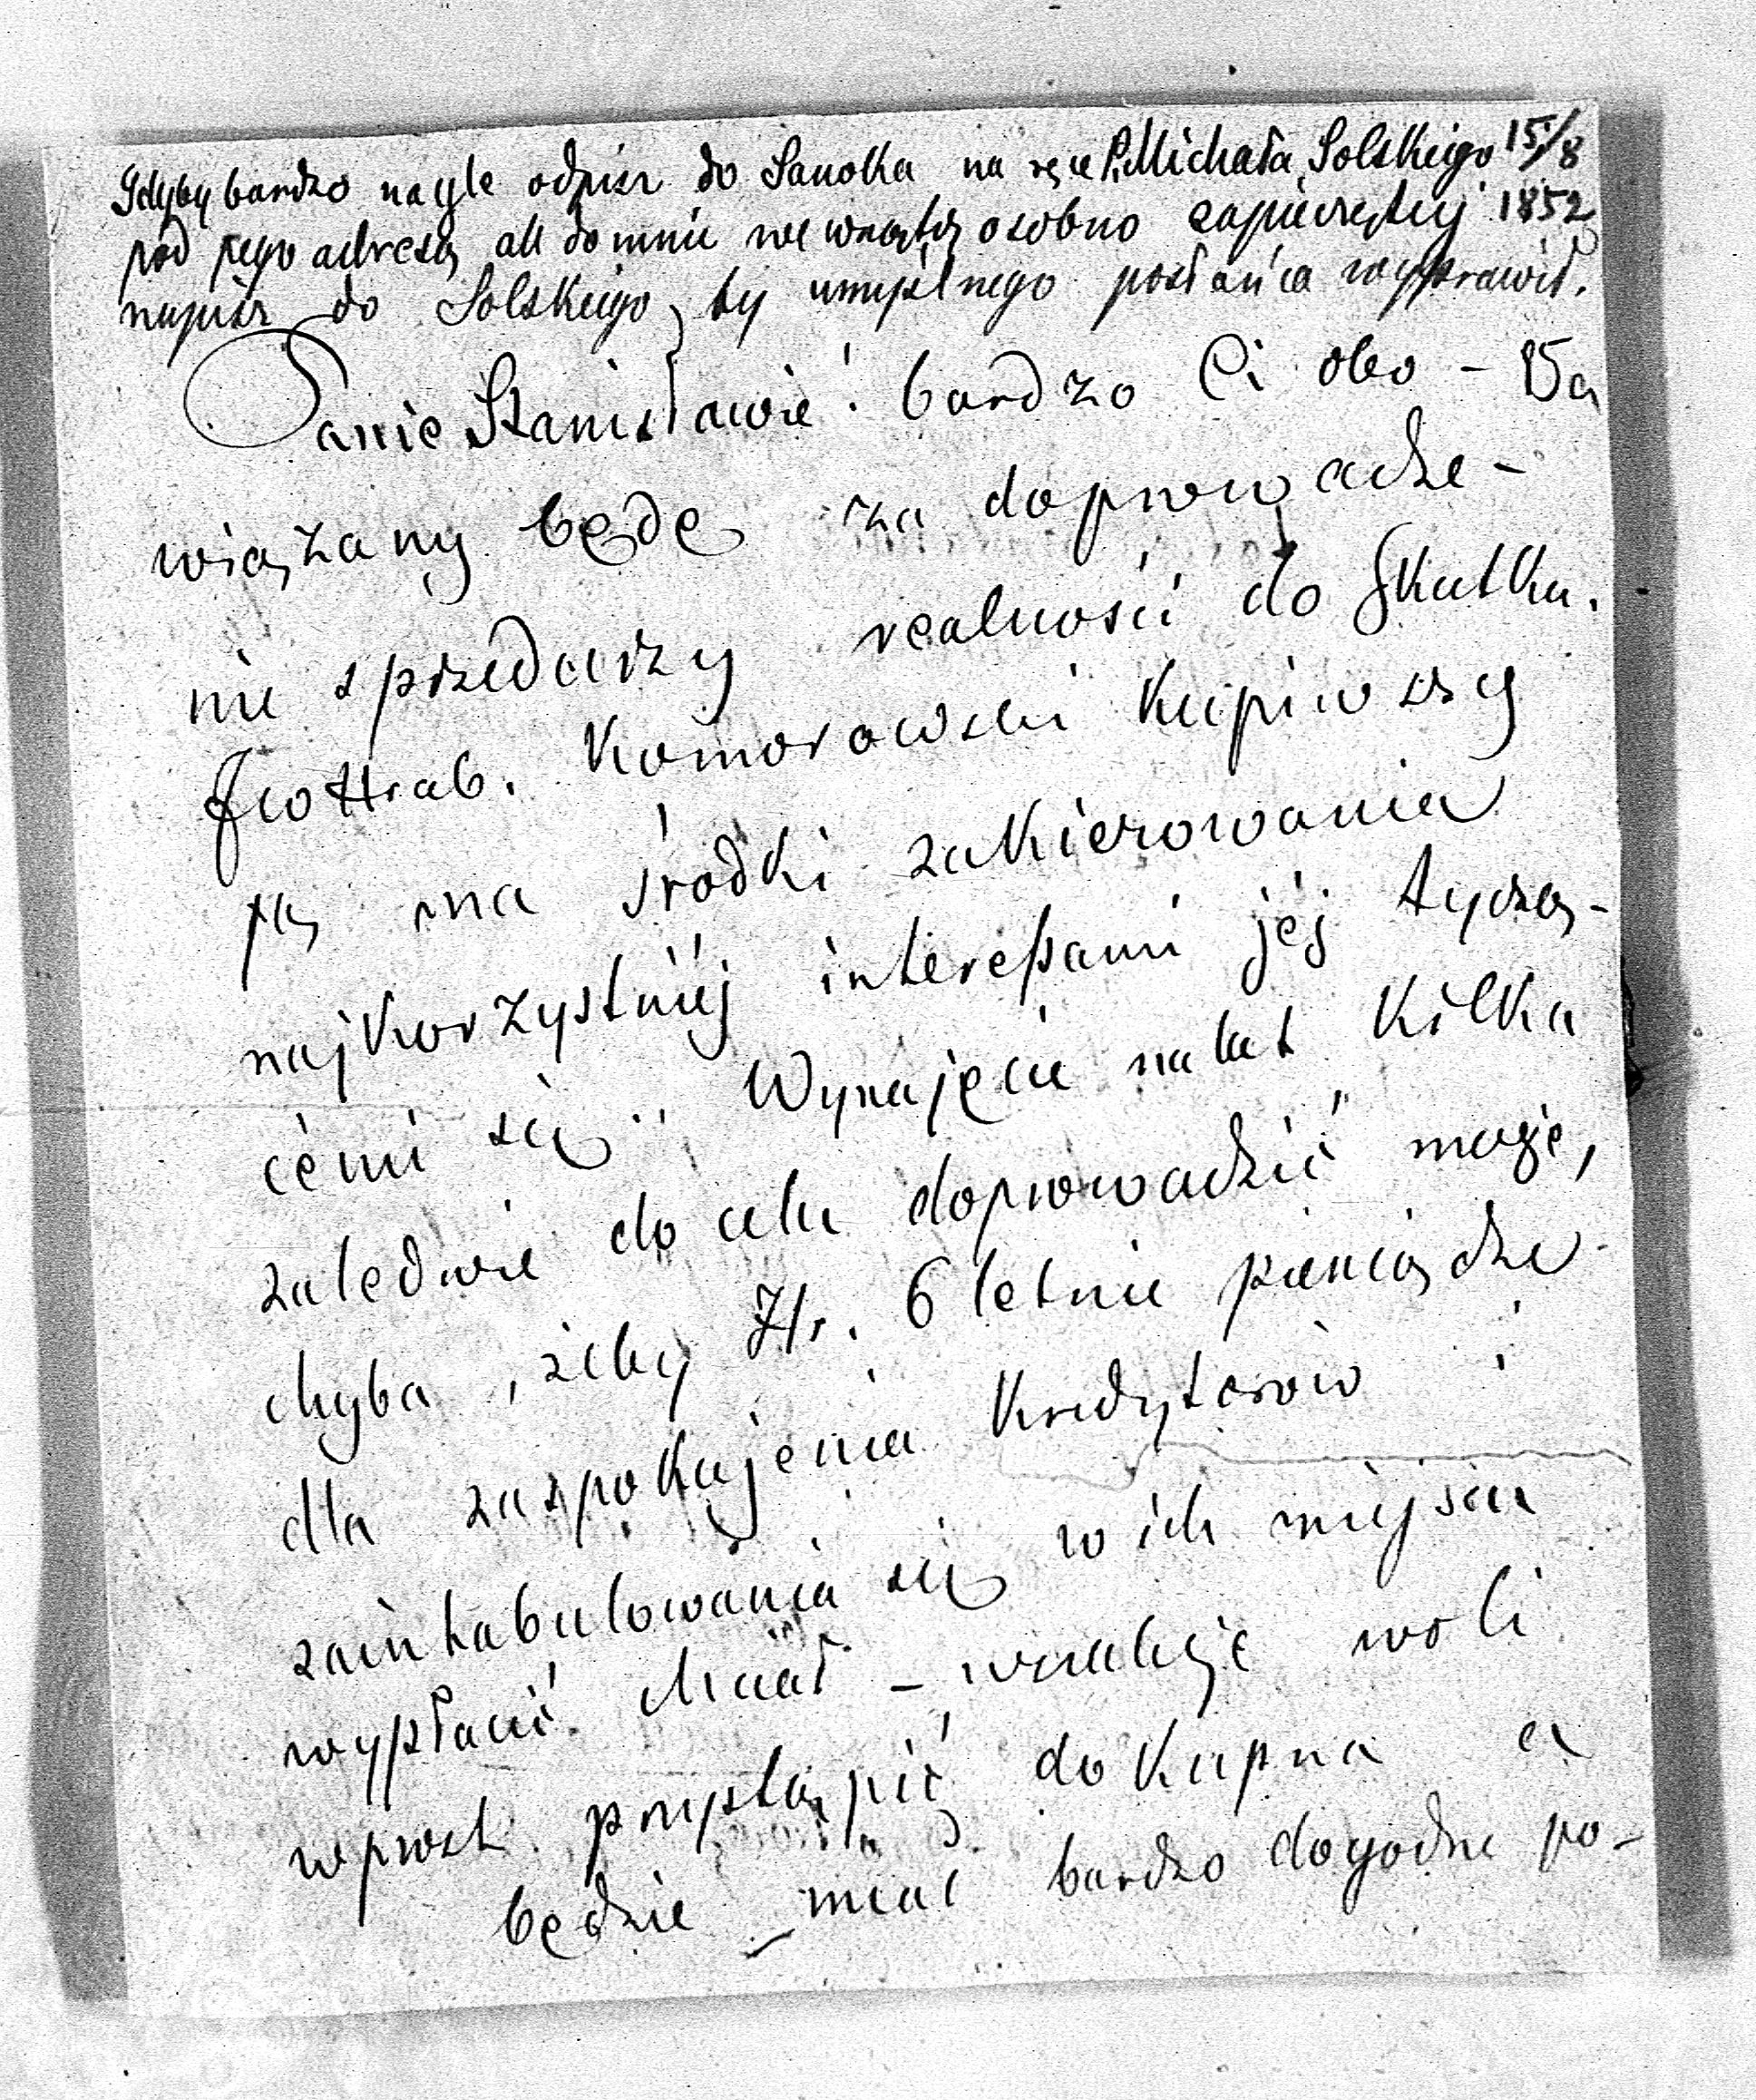 Gdyby bardzo nagle odpisz do Sanoka na ręce P. Michała Solskiego 15/8
pod jego adresą ale do mnie wewnątrz osobno zapieczętuj 1852
napisz do Solskiego, by umyślnego posłańca wyprawił.
Panie Stanisławie! bardzo Ci obo-
wiązany będę za doprowadze-
nie sprzedarzy realności do skutku.
JWo Hrab. Komorowski kupiwszy
ją ma środki zakierowania
najkorzystniéj interessami jéj tyczą-
cémi się. Wynajęcie na lat kilka
zaledwie do celu doprowadzić może,
chyba, żeby Hr. 6 letnie pieniądze
dla zaspokajenia kredytorów i
zaintabulowania się w ich miejscu
wypłacić chciał – wszakże woli
wprost przystąpić do kupna a
będzie miał bardzo dogodne po-